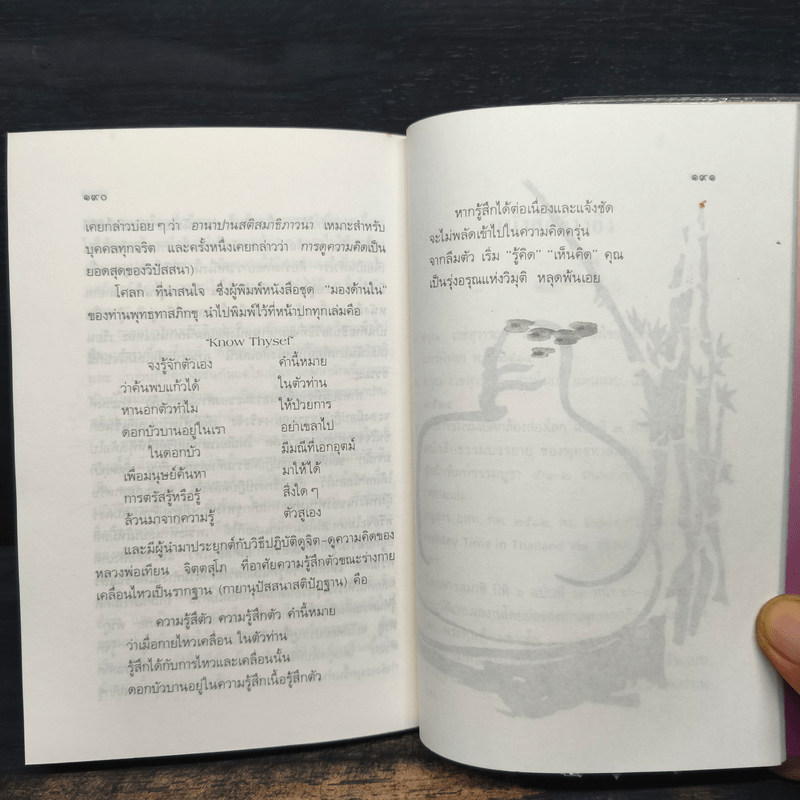 ๑๙๐
เคยกล่าวบ่อย ๆ ว่า อานาปานสติสมาธิภาวนา เหมาะสำหรับ
บุคคลทุกจริต และครั้งหนึ่งเคยกล่าวว่า การดูความคิดเป็น
ยอดสุดของวิปัสสนา)
โศลก ที่น่าสนใจ ซึ่งผู้พิมพ์หนังสือชุด "มองด้านใน"
ของท่านพุทธทาสภิกขุ นำไปพิมพ์ไว้ที่หน้าปกทุกเล่มคือ
"Know Thysef"
จงรู้จักตัวเอง คำนี้หมาย
ว่าค้นพบแก้วได้ ในตัวท่าน
หานอกตัวทำไม ให้ป่วยการ
ดอกบัวบานอยู่ในเรา อย่าเขลาไป
ในดอกบัว มีมณีที่เอกอุตม์
เพื่อมนุษย์ค้นหา มาให้ได้
การตรัสรู้หรือรู้ สิ่งใด ๆ
ล้วนมาจากความรู้ ตัวสูเอง
และมีผู้นำมาประยุกต์กับวิธีปฏิบัติดูจิต-ดูความคิดของ
หลวงพ่อเทียน จิตตสุโภ ที่อาศัยความรู้สึกตัวขณะร่างกาย
เคลื่อนไหวเป็นรากฐาน (กายานุปัสสนาสติปัฏฐาน) คือ
ความรู้สึตัว ความรู้สึกตัว คำนี้หมาย
ว่าเมื่อกายไหวเคลื่อน ในตัวท่าน
รู้สึกได้กับการไหวและเคลื่อนนั้น
ดอกบัวบานอยู่ในความรู้สึกเนื้อรู้สึกตัว
๑๙๑
หากรู้สึกได้ต่อเนื่องและแจ้งชัด
จะไม่พลัดเข้าไปในความคิดครุ่น
จากลืมตัว เริ่ม "รู้คิด" "เห็นคิด" คุณ
เป็นรุ่งอรุณแห่งวิมุติ หลุดพ้นเอย